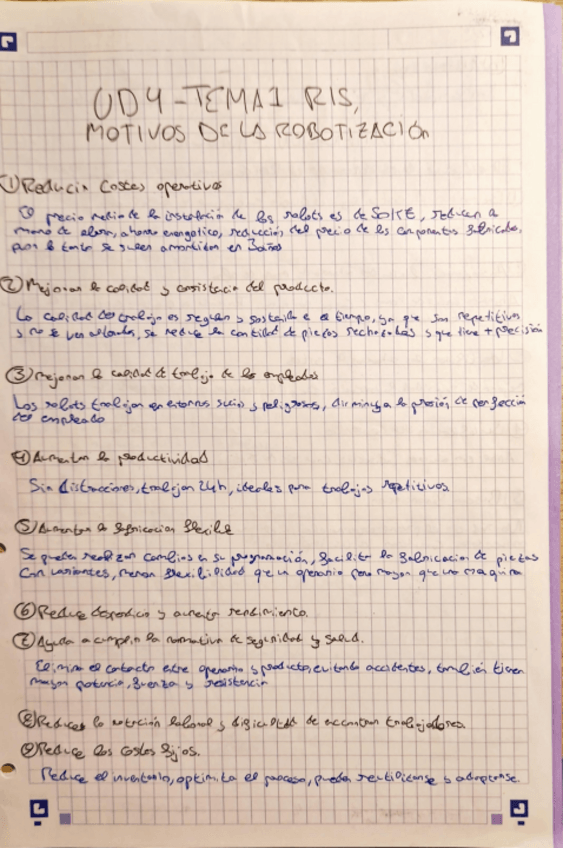 UD4 - TEMA 1 RIS,
MOTIVOS DE LA ROBOTIZACIÓN
① Reducir Costes operativos
El precio medio de la instalación de los robots es de 50K€, reducen la
mano de obra, ahorro energético, reducción del precio de los componentes fabricados,
por lo tanto se suelen amortizar en 3años
② Mejoran la calidad y consistencia del producto.
La calidad del trabajo es regular y sostenible en el tiempo, ya que son repetitivos
y no se ven alterados, se reduce la cantidad de piezas rechazadas y que tiene + precisión
③ Mejoran la calidad de trabajo de los empleados
Los robots trabajan en entornos sucios y peligrosos, disminuye la presión de perfección
del empleado
④ Aumentan la productividad
Sin distracciones, trabajan 24h, ideales para trabajos repetitivos
⑤ Aumentan la fabricación flexible
Se pueden realizar cambios en su programación, facilita la fabricación de piezas
con variantes, menor flexibilidad que un operario pero mayor que una maquina
⑥ Reduce desperdicio y aumenta rendimiento.
⑦ Ayuda a cumplir la normativa de seguridad y salud.
Elimina el contacto entre operario y producto, evitando accidentes, también tienen
mayor potencia, fuerza y resistencia
⑧ Reduces la rotación laboral y dificultad de encontrar trabajadores.
⑨ Reduce los costes fijos.
Reduce el inventario, optimiza el proceso, pueden reutilizarse y adaptarse.